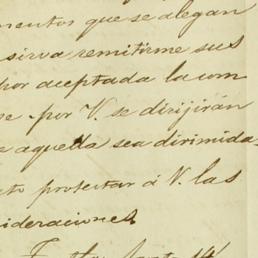 mentos que se alegan
sirva remitirme sus
por aceptada la com
por V. se dirijirán
aquella sea dirimida
protestar á V. las
sideraciones
14